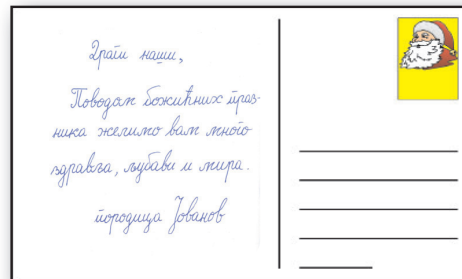 Драги наши,
Поводом божићних праз-
ника желимо вам много
здравља, љубави и мира.
породица Јованов